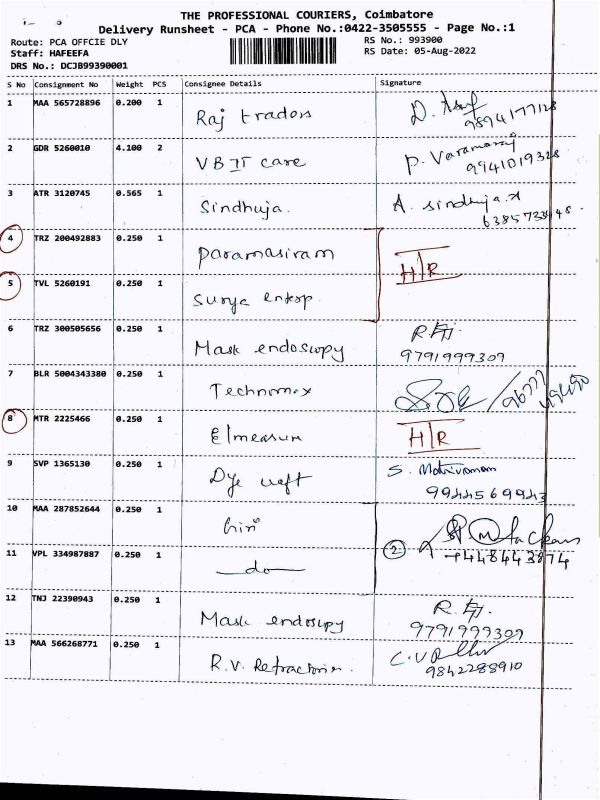 THE PROFESSIONAL COURIERS, Coimbatore
Delivery Runsheet - PCA - Phone No.:0422-3505555 - Page No.:1
Route: PCA OFFCIE DLY RS No.: 993900
Staff: HAFEEFA RS Date: 05-Aug-2022
DRS No.: DCJB99390001
S No Consignment No Weight PCS Consignee Details Signature
1 MAA 565728896 0.200 1 Raj tradors
9894177128
2 GDR 5260010 4.100 2 VB IT care P. Varamaraj
9941019328
3 ATR 3120745 0.565 1 Sindhuja. A. Sindhuja.
4 TRZ 200492883 0.250 1 paramasivam H/R
5 TVL 5260191 0.250 1 Surya enterp.
6 TRZ 300505656 0.250 1 Mask endoscopy
9791999309
7 BLR 5004343380 0.250 1 Technomex
8 MTR 2225466 0.250 1 Elmeasure H/R
9 SVP 1365130 0.250 1 Dye weft S.
9944569943
10 MAA 287852644 0.250 1 Giri
11 VPL 334987887 0.250 1 —do— 2
12 TNJ 22390943 0.250 1 Mask endoscopy
9791999309
13 MAA 566268771 0.250 1 R.V. Refractories
9842288910